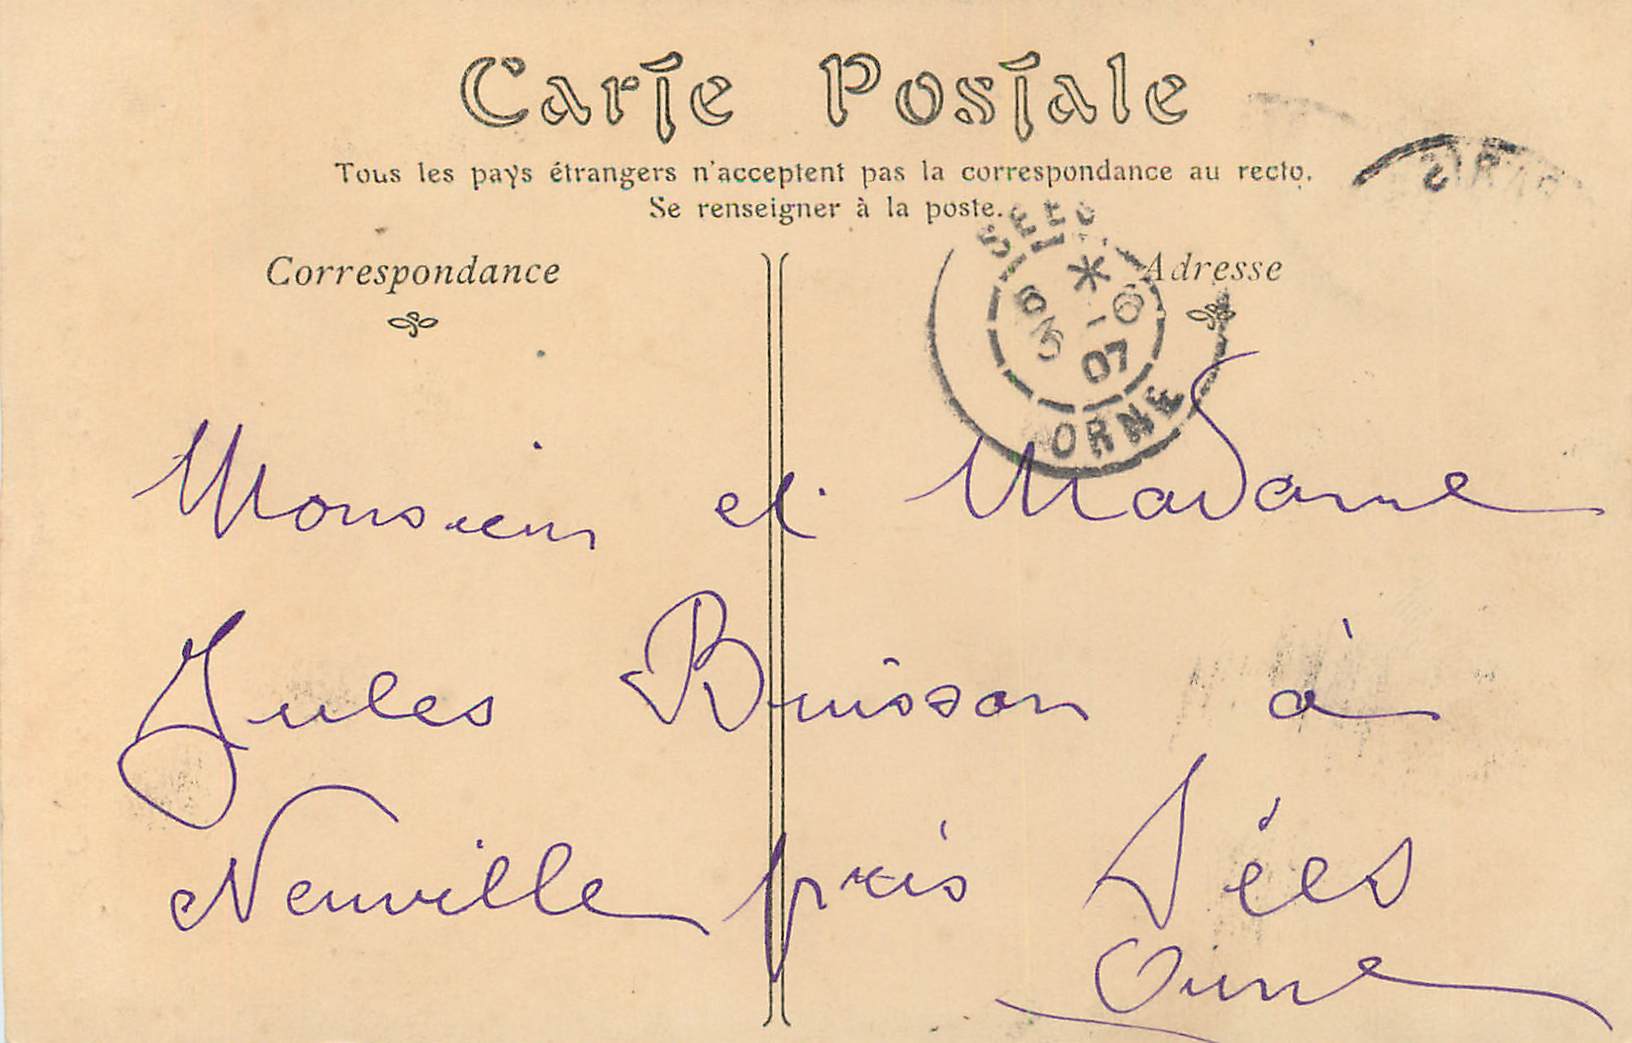 Carte Postale
Tous les pays étrangers n'acceptent pas la correspondance au recto.
Se renseigner à la poste.
Correspondance
Adresse
SEES
* 
3 -6
07
ORNE
Monsieur et Madame
Jules Buisson à
Neuville près Sées
Orne